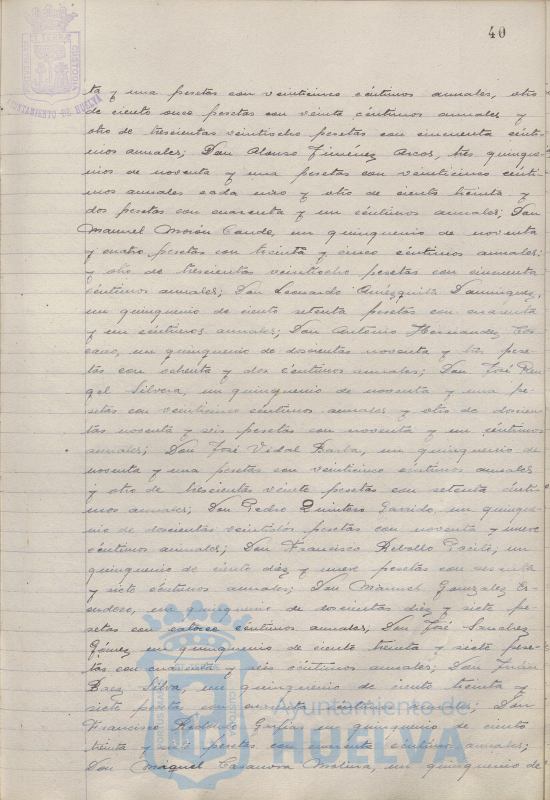 40
AYUNTAMIENTO DE HUELVA
ta y una pesetas con veinticinco céntimos anuales, otro
de ciento once pesetas con veinte céntimos anuales y
otro de trescientas veintiocho pesetas con cincuenta cénti-
mos anuales; Don Alonso Jiménez Arcos, tres quinque-
nios de noventa y una pesetas con veinticinco cénti-
mos anuales cada uno y otro de ciento treinta y
dos pesetas con cuarenta y un céntimos anuales; Don
Manuel Morón Conde, un quinquenio de noventa
y cuatro pesetas con treinta y cinco céntimos anuales:
y otro de trescientas veintiocho pesetas con cincuenta
céntimos anuales; Don Leonardo Amézquita Domínguez,
un quinquenio de ciento setenta pesetas con cuarenta
y un céntimos anuales; Don Antonio Hernandez
un quinquenio de doscientas noventa y tres pese-
tas con ochenta y dos céntimos anuales; Don José Ran-
gel Silvera, un quinquenio de noventa y una pe-
setas con veinticinco céntimos anuales y otro de doscien-
tas noventa y seis pesetas con noventa y un céntimos
anuales; Don José Vidal Barba, un quinquenio de
noventa y una pesetas con veinticinco céntimos anuales
y otro de trescientas veinte pesetas con setenta cénti-
mos anuales; Don Pedro Quintero Garrido, un quinque-
nio de doscientas veintidós pesetas con noventa y nueve
céntimos anuales; Don Francisco Rebollo un
quinquenio de ciento diez y nueve pesetas con sesenta
y siete céntimos anuales; Don Manuel Gonzalez
un quinquenio de doscientas diez y siete pe-
setas con catorce céntimos anuales, Don José Sanchez
Gómez un quinquenio de ciento treinta y siete pese-
tas con cuarenta y seis céntimos anuales; Don Julián
Baez Silva, un quinquenio de ciento treinta y
siete pesetas con cuarenta céntimos anuales; Don
Francisco Redondo Garfia un quinquenio de ciento
treinta y pesetas con cuarenta céntimos anuales;
Don Miguel Casanova Molina, un quinquenio de
Ayuntamiento de
HUELVA